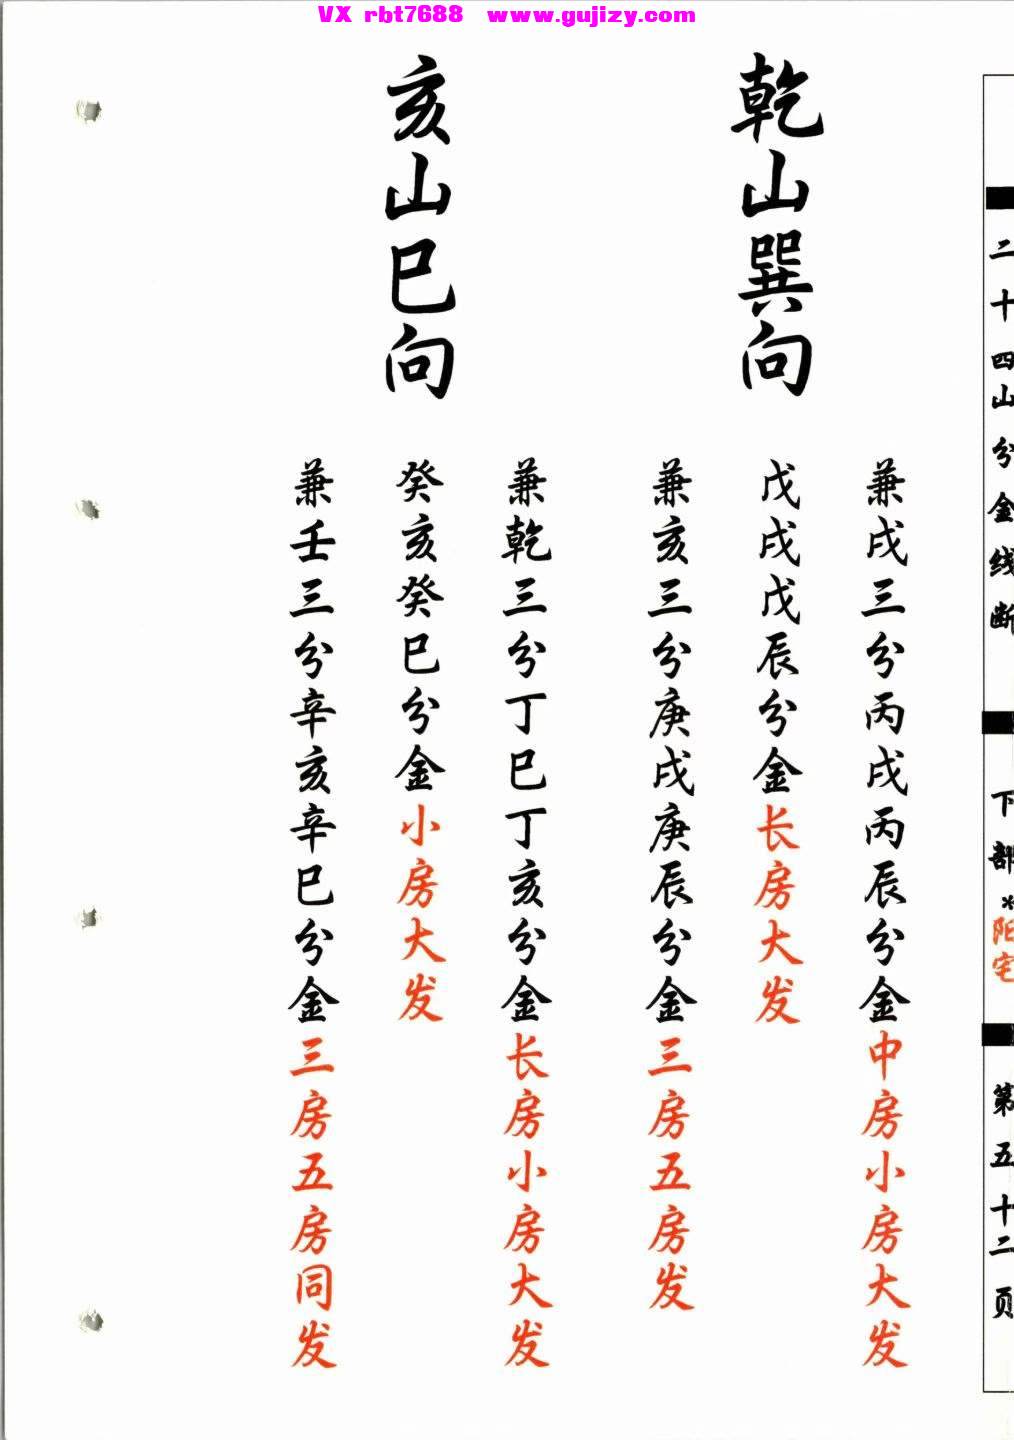 VX rbt7688 www.gujizy.com
二十四山分金线断
下部*阳宅
第五十二页
乾山巽向
兼戌三分丙戌丙辰分金中房小房大发
戊戌戊辰分金长房大发
兼亥三分庚戌庚辰分金三房五房发
亥山巳向
兼乾三分丁巳丁亥分金长房小房大发
癸亥癸巳分金小房大发
兼壬三分辛亥辛巳分金三房五房同发